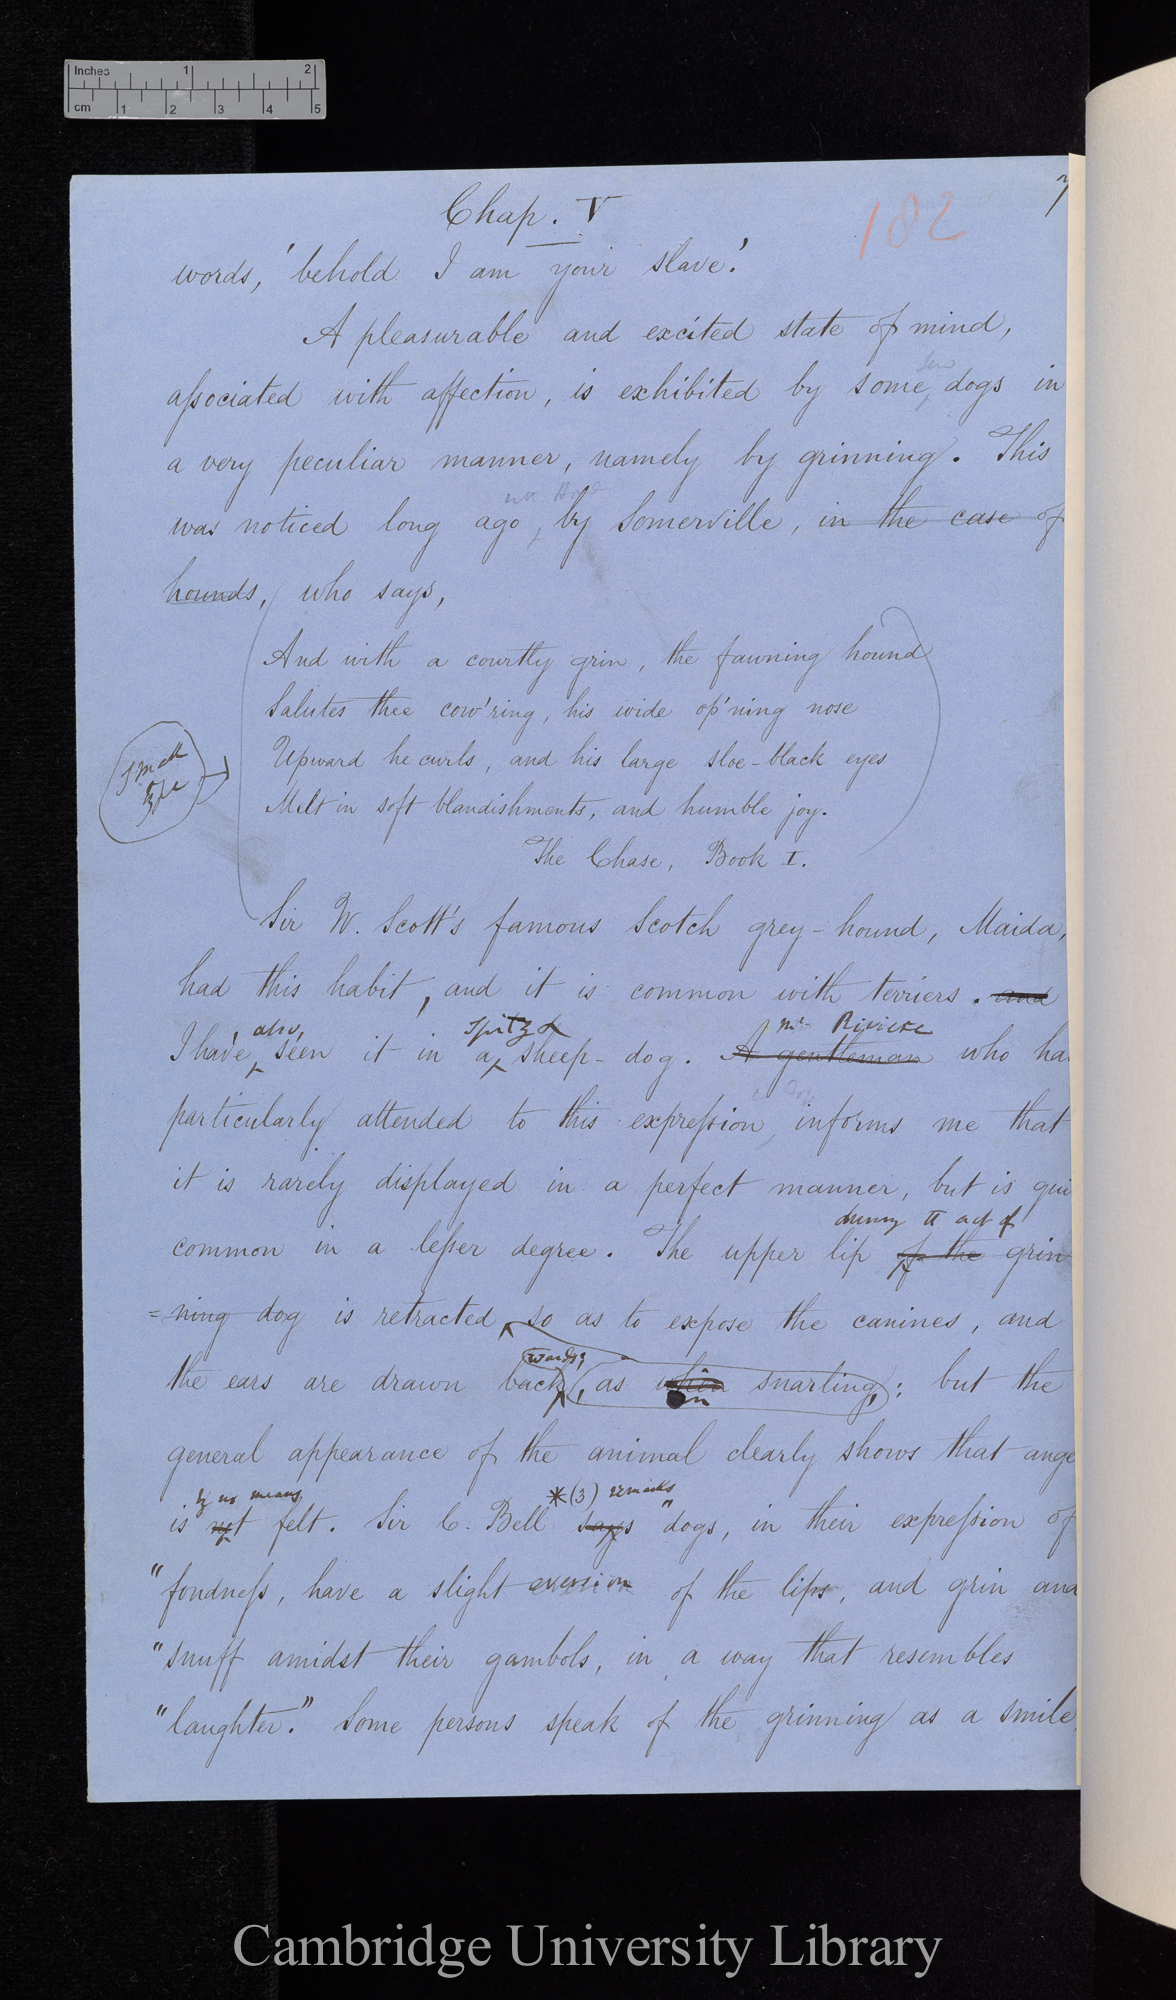 Inches 1 2
cm 1 2 3 4 5
Chap. V
182
7
words, 'behold I am your slave.'
A pleasurable and excited state of mind,
associated with affection, is exhibited by some dogs in
a very peculiar manner, namely by grinning. This
was noticed long ago, by Somerville, in the case of
hounds, who says,
And with a courtly grin, the fawning hound
Salutes thee cow'ring, his wide op'ning nose
Upward he curls, and his large sloe-black eyes
Small
type
Melt in soft blandishments, and humble joy.
The Chase, Book I.
Sir W. Scott's famous Scotch grey-hound, Maida,
had this habit, and it is common with terriers. and
also, Spitz & Mr Riviere
I have seen it in a sheep-dog. A gentleman who ha
particularly attended to this expression, informs me that
it is rarely displayed in a perfect manner, but is qui
during the act of
common in a lesser degree. The upper lip of the grin
=ning dog is retracted, so as to expose the canines, and
wards;
the ears are drawn back, as when in snarling,; but the
general appearance of the animal clearly shows that ange
by no means *(3) remarks
is not felt. Sir C. Bell says "dogs, in their expression of
"fondness, have a slight eversion of the lips, and grin and
"snuff amidst their gambols, in a way that resembles
"laughter." Some persons speak of the grinning as a smile
Cambridge University Library